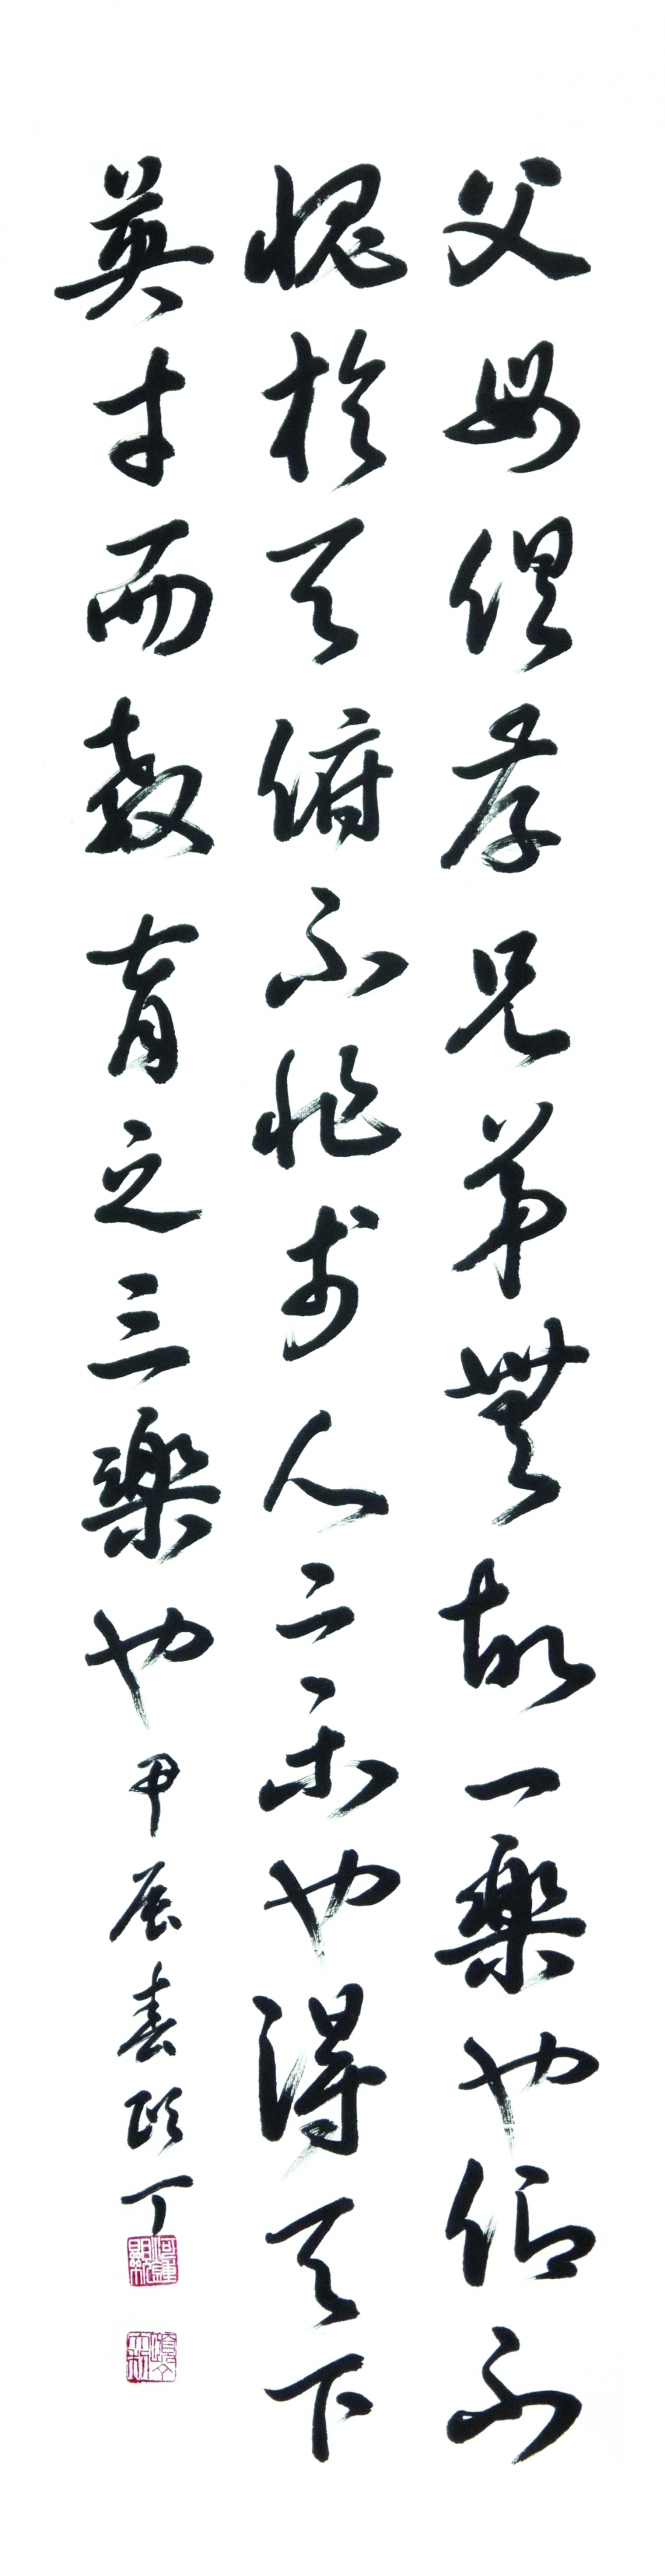 父母俱存兄弟無故一樂也仰不
愧於天俯不怍於人二樂也得天下
英才而敎育之三樂也甲辰春丁